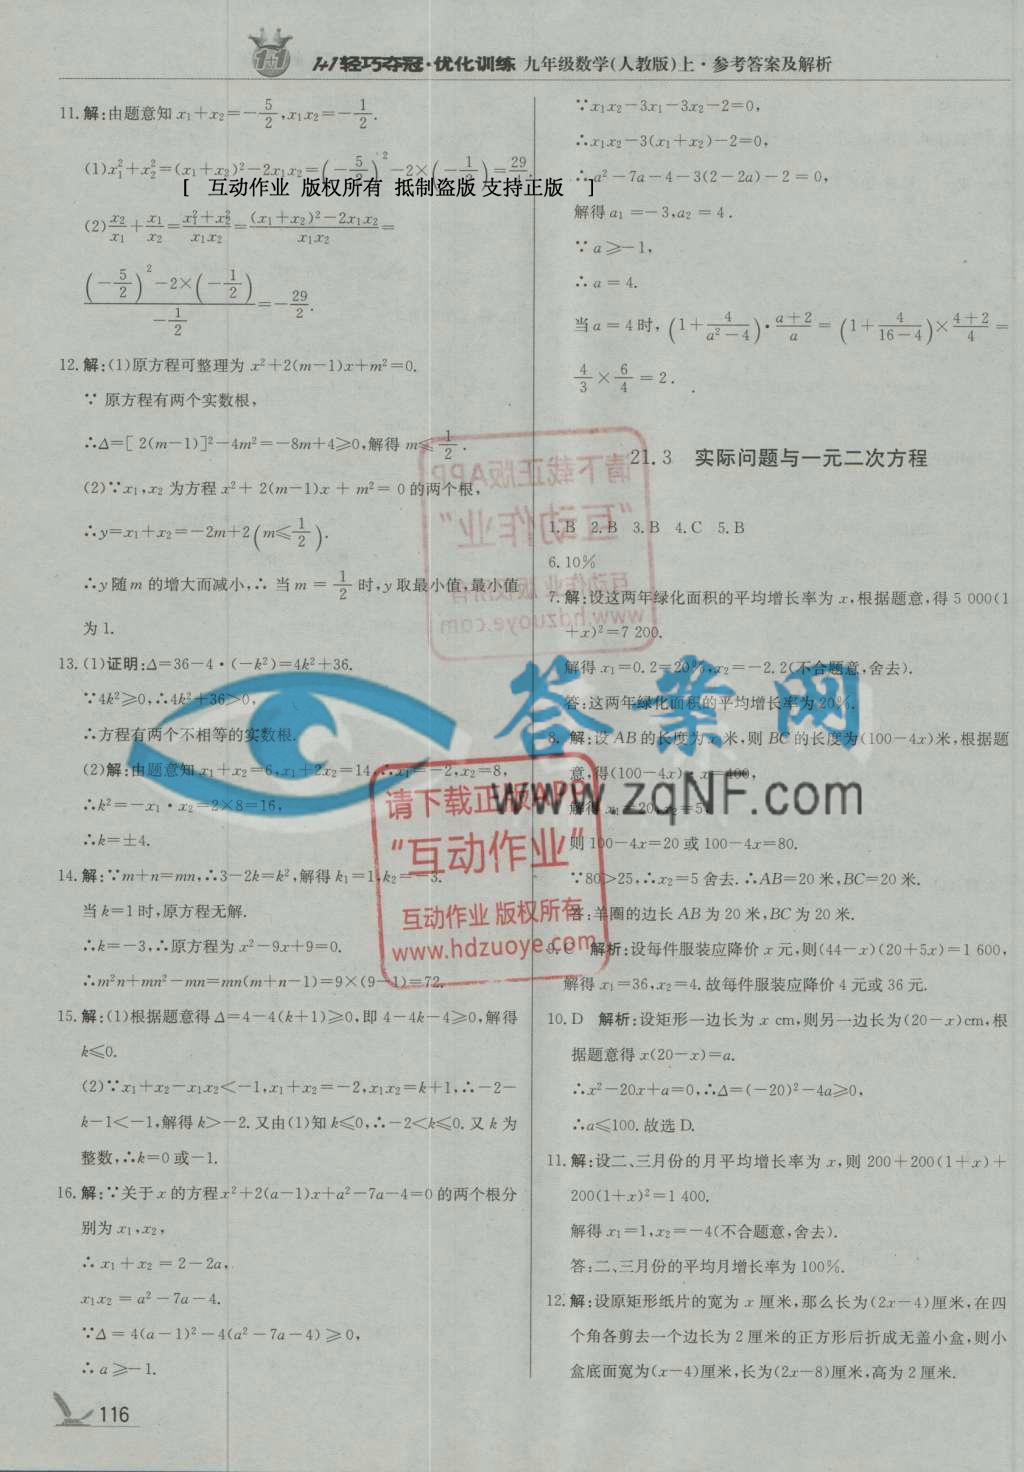 1+1轻巧夺冠·优化训练 九年级数学(人教版)上·参考答案及解析
11.解:由题意知 x₁+x₂=-5/2,x₁x₂=-1/2.
(1)x₁²+x₂²=(x₁+x₂)²-2x₁x₂=(-5/2)²-2×(-1/2)=29/
[ 互动作业 版权所有 抵制盗版 支持正版 ]
(2)x₂/x₁+x₁/x₂=(x₁²+x₂²)/(x₁x₂)=((x₁+x₂)²-2x₁x₂)/(x₁x₂)=
((-5/2)²-2×(-1/2))/(-1/2)=-29/2.
12.解:(1)原方程可整理为 x²+2(m-1)x+m²=0.
∵ 原方程有两个实数根,
∴Δ=[ 2(m-1)]²-4m²=-8m+4≥0,解得 m≤1/2.
(2)∵x₁,x₂ 为方程 x²+ 2(m-1)x + m²= 0 的两个根,
∴y=x₁+x₂=-2m+2(m≤1/2).
∴y 随 m 的增大而减小,∴ 当 m = 1/2 时,y 取最小值,最小值
为 1.
13.(1)证明:Δ=36-4·(-k²)=4k²+36.
∵4k²≥0,∴4k²+36>0,
∴方程有两个不相等的实数根.
(2)解:由题意知 x₁+x₂=6,x₁+2x₂=14,∴x₁=-2,x₂=8,
∴k²=-x₁·x₂=2×8=16,
∴k=±4.
14.解:∵m+n=mn,∴3-2k=k²,解得 k₁=1,k₂=-3.
当 k=1 时,原方程无解.
∴k=-3,∴原方程为 x²-9x+9=0.
∴m²n+mn²-mn=mn(m+n-1)=9×(9-1)=72.
15.解:(1)根据题意得 Δ=4-4(k+1)≥0,即 4-4k-4≥0,解得
k≤0.
(2)∵x₁+x₂-x₁x₂<-1,x₁+x₂=-2,x₁x₂=k+1,∴-2-
k-1<-1,解得 k>-2.又由(1)知 k≤0,∴-2<k≤0.又 k 为
整数,∴k=0 或-1.
16.解:∵关于 x 的方程 x²+2(a-1)x+a²-7a-4=0 的两个根分
别为 x₁,x₂,
∴ x₁+x₂ = 2-2a,
x₁x₂ = a²-7a-4.
∵Δ= 4(a-1)²-4(a²-7a-4) ≥ 0,
∴ a ≥-1.
116
∵x₁x₂-3x₁-3x₂-2=0,
∴x₁x₂-3(x₁+x₂)-2=0,
∴a²-7a-4-3(2-2a)-2 = 0,
解得 a₁ =-3,a₂ = 4.
∵ a ≥-1,
∴ a = 4.
当 a = 4 时, (1+4/(a²-4))·(a+2)/a = (1+4/(16-4))×(4+2)/4 =
4/3×6/4 = 2.
21.3 实际问题与一元二次方程
1.B 2.B 3.B 4.C 5.B
6.10%
7.解:设这两年绿化面积的平均增长率为 x,根据题意,得 5 000(1
+x)²=7 200.
解得 x₁=0.2=20%,x₂=-2.2(不合题意,舍去).
答:这两年绿化面积的平均增长率为 20%.
8.解:设 AB 的长度为 x 米,则 BC 的长度为(100-4x)米,根据题
意,得(100-4x) x 400,
解得 x₁=20,x₂=5.
则 100-4x=20 或 100-4x=80.
∵80>25,∴x₂=5 舍去.∴AB=20 米,BC=20 米.
答:羊圈的边长 AB 为 20 米,BC 为 20 米.
9.C 解析:设每件服装应降价 x 元,则(44-x)(20+5x)=1 600,
解得 x₁=36,x₂=4.故每件服装应降价 4 元或 36 元.
10.D 解析:设矩形一边长为 x cm,则另一边长为(20-x)cm,根
据题意得 x(20-x)=a.
∴x²-20x+a=0,∴Δ=(-20)²-4a≥0,
∴a≤100.故选D.
11.解:设二、三月份的月平均增长率为 x,则 200+200(1+x)+
200(1+x)²=1 400.
解得 x₁=1,x₂=-4(不合题意,舍去).
答:二、三月份的平均月增长率为 100%.
12.解:设原矩形纸片的宽为 x 厘米,那么长为(2x-4)厘米,在四
个角各剪去一个边长为 2 厘米的正方形后折成无盖小盒,则小
盒底面宽为(x-4)厘米,长为(2x-8)厘米,高为 2 厘米.
请下载正版APP
“互动作业”
互动作业 版权所有
www.hdzuoye.com
答案网
www.zqNF.com
请下载正版APP
“互动作业”
互动作业 版权所有
www.hdzuoye.com